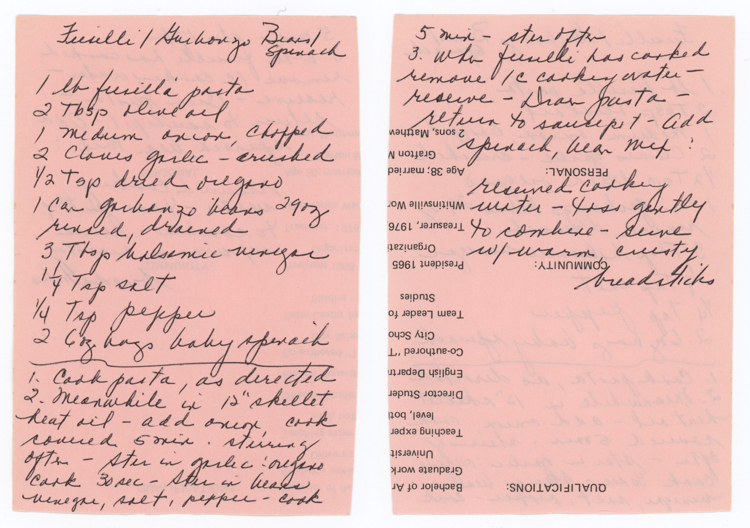 Fusilli / Garbonzo Beans /
Spinach
1 lb fusilla pasta
2 Tbsp olive oil
1 medium onion, chopped
2 Cloves garlic - crushed
1/2 Tsp dried oregano
1 Can garbanzo beans 29 oz
rinsed, drained
3 Tbsp balsamic vinegar
1/4 Tsp salt
1/4 Tsp pepper
2 6oz bags baby spinach
1. Cook pasta, as directed
2. Meanwhile in 12" skillet
heat oil - add onion, cook
covered 5 min. stirring
often - Stir in garlic : oregano
cook 30 sec - Stir in beans
vinegar, salt, pepper - cook
5 min - stir often
3. When fusilli has cooked
remove 1 c cooking water -
reserve - Drain pasta -
return to saucepot - add
spinach, bean mix :
reserved cooking
water - toss gently
to combine - serve
w/ warm, crusty
breadsticks
QUALIFICATIONS:
Bachelor of Ar
Graduate work
Universit
Teaching exper
level, both
Director Studen
English Departm
Co-authored "T
City Scho
Team Leader fo
Studies
COMMUNITY:
President 1965
Organizatio
Treasurer, 1976
Whitinsville Wo
PERSONAL:
Age 38; married
Grafton M
2 sons, Mathew